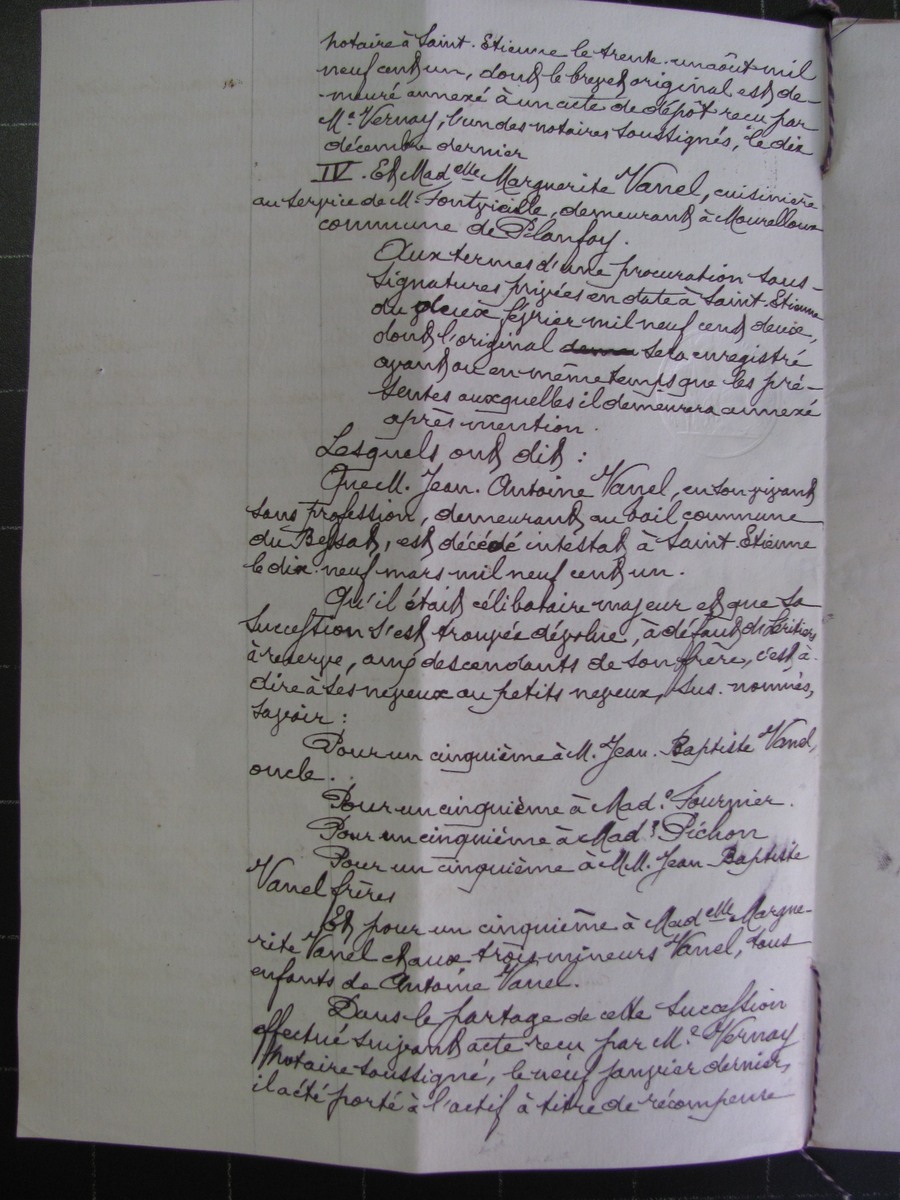 notaire à Saint-Etienne le trente-un août mil
neuf cent un, dont le brevet original est de-
meuré annexé à un acte de dépôt reçu par
Me Vernay, l'un des notaires soussignés, le dix
décembre dernier
IV. Et Madelle Marguerite Vanel, cuisinière
au service de Mr Fontvieille, demeurant à Mourelloux
commune de Planfoy.
Aux termes d'une procuration sous-
signatures privées en date à Saint-Etienne
du deux février mil neuf cent deux,
dont l'original sera enregistré
avant ou en même temps que les pré-
sentes auxquelles il demeurera annexé
après mention.
Lesquels ont dit :
Que M. Jean-Antoine Vanel, en son vivant
sans profession, demeurant au bail commune
du Bessat, est décédé intestat à Saint-Etienne
le dix-neuf mars mil neuf cent un.
Qu'il était célibataire majeur et que sa
succession s'est trouvée dévolue, à défaut d'héritiers
à réserve, aux descendants de son frère, c'est à-
dire à ses neveux ou petits neveux, sus-nommés,
savoir :
Pour un cinquième à M. Jean-Baptiste Vanel,
oncle..
Pour un cinquième à Made Fournier.
Pour un cinquième à Made Pichon
Pour un cinquième à MM. Jean Baptiste
Vanel frères
Et pour un cinquième à Madelle Margue-
rite Vanel et aux trois mineurs Vanel, tous
enfants de Antoine Vanel.
Dans le partage de cette succession
effectué suivant acte reçu par Me Vernay
notaire soussigné, le neuf janvier dernier,
il a été porté à l'actif à titre de récompense